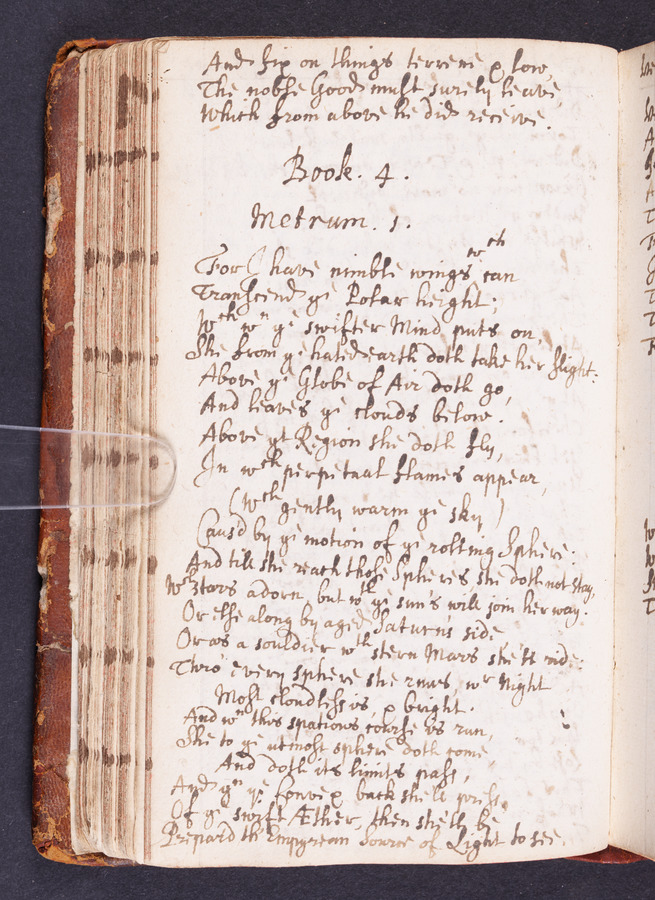 And fix on things terrene & low,
The noble Good must surely leave,
Which from above he did receive.
Book. 4.
Metrum. 1.
For I have nimble wings wch can
Transcend ye Polar height;
Wch wn ye swifter Mind puts on,
She from ye hated earth doth take her flight:
Above ye Globe of Air doth go,
And leaves ye clouds below.
Above yt Region she doth fly,
In wch perpetual flames appear,
(wch gently warm ye sky)
Caus'd by ye motion of ye rolling Sphere:
And till she reach those Spheres she doth not stay,
Wr Stars adorn, but wth ye sun's will join her way.
Or else along by aged Saturn's side
Or as a souldier wth stern Mars she'll ride:
Thro every sphere she runs, wr Night
Most cloudless is, & bright.
And wn this spatious course is run,
She to ye utmost sphere doth come,
And doth its limits pass,
And yn ye convex back she'll press,
Of ye swift Æther, then she'll be
Prepar'd th'Empyrean Source of Light to see.